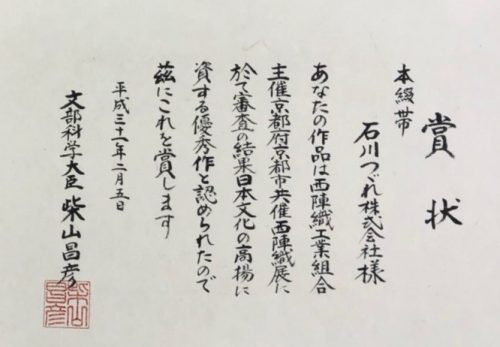 賞状
本綴帯
石川つづれ株式会社様
あなたの作品は西陣織工業組合
主催京都府京都市共催西陣織展に
於て審査の結果日本文化の高揚に
資する優秀作と認められたので
茲にこれを賞します
平成三十一年二月五日
文部科学大臣 柴山昌彦
柴山
昌彦